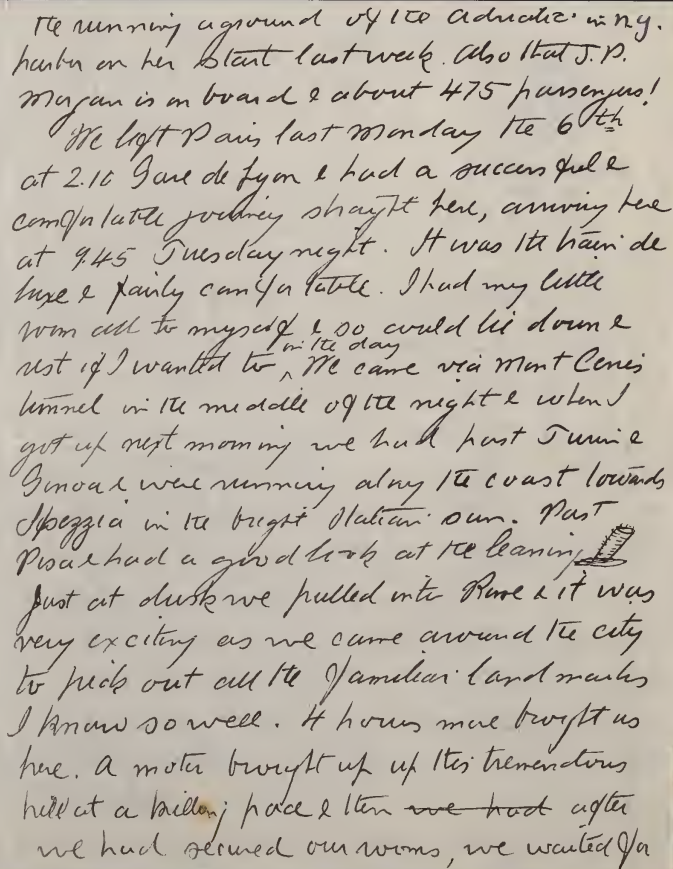 the running aground of the Adriatic in N.Y.
harbor on her start last week. Also that J.P.
Morgan is on board & about 475 passengers!
We left Paris last Monday the 6th
at 2.10 Gare de Lyon & had a successful &
comfortable journey straight here, arriving here
at 9.45 Tuesday night. It was the train de
luxe & fairly comfortable. I had my little
room all to myself & so could lie down &
rest if I wanted to ^ in the day We came via Mont Cenis
tunnel in the middle of the night & when I
got up next morning we had past Turin &
Genoa & were running along the coast towards
Spezzia in the bright Italian sun. Past
Pisa & had a good look at the leaning
Just at dusk we pulled into Rome & it was
very exciting as we came around the city
to pick out all the familiar landmarks
I know so well. 4 hours more brought us
here. A motor brought up up this tremendous
hill at a killing pace & then we had after
we had secured our rooms, we waited for